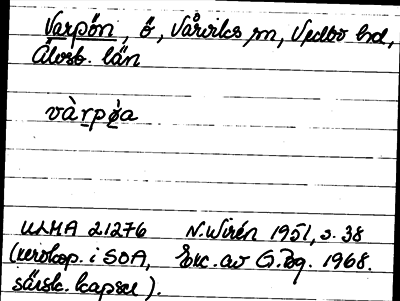 Varpön, ö, Vårviks sn, Vedbo hd,
Älvsb. län
vàrpǿa
ULMA 21276 N. Wirén 1951, s. 38
(xerokop. i SOA, Exc. av G. Bg. 1968.
särsk. kapsel).